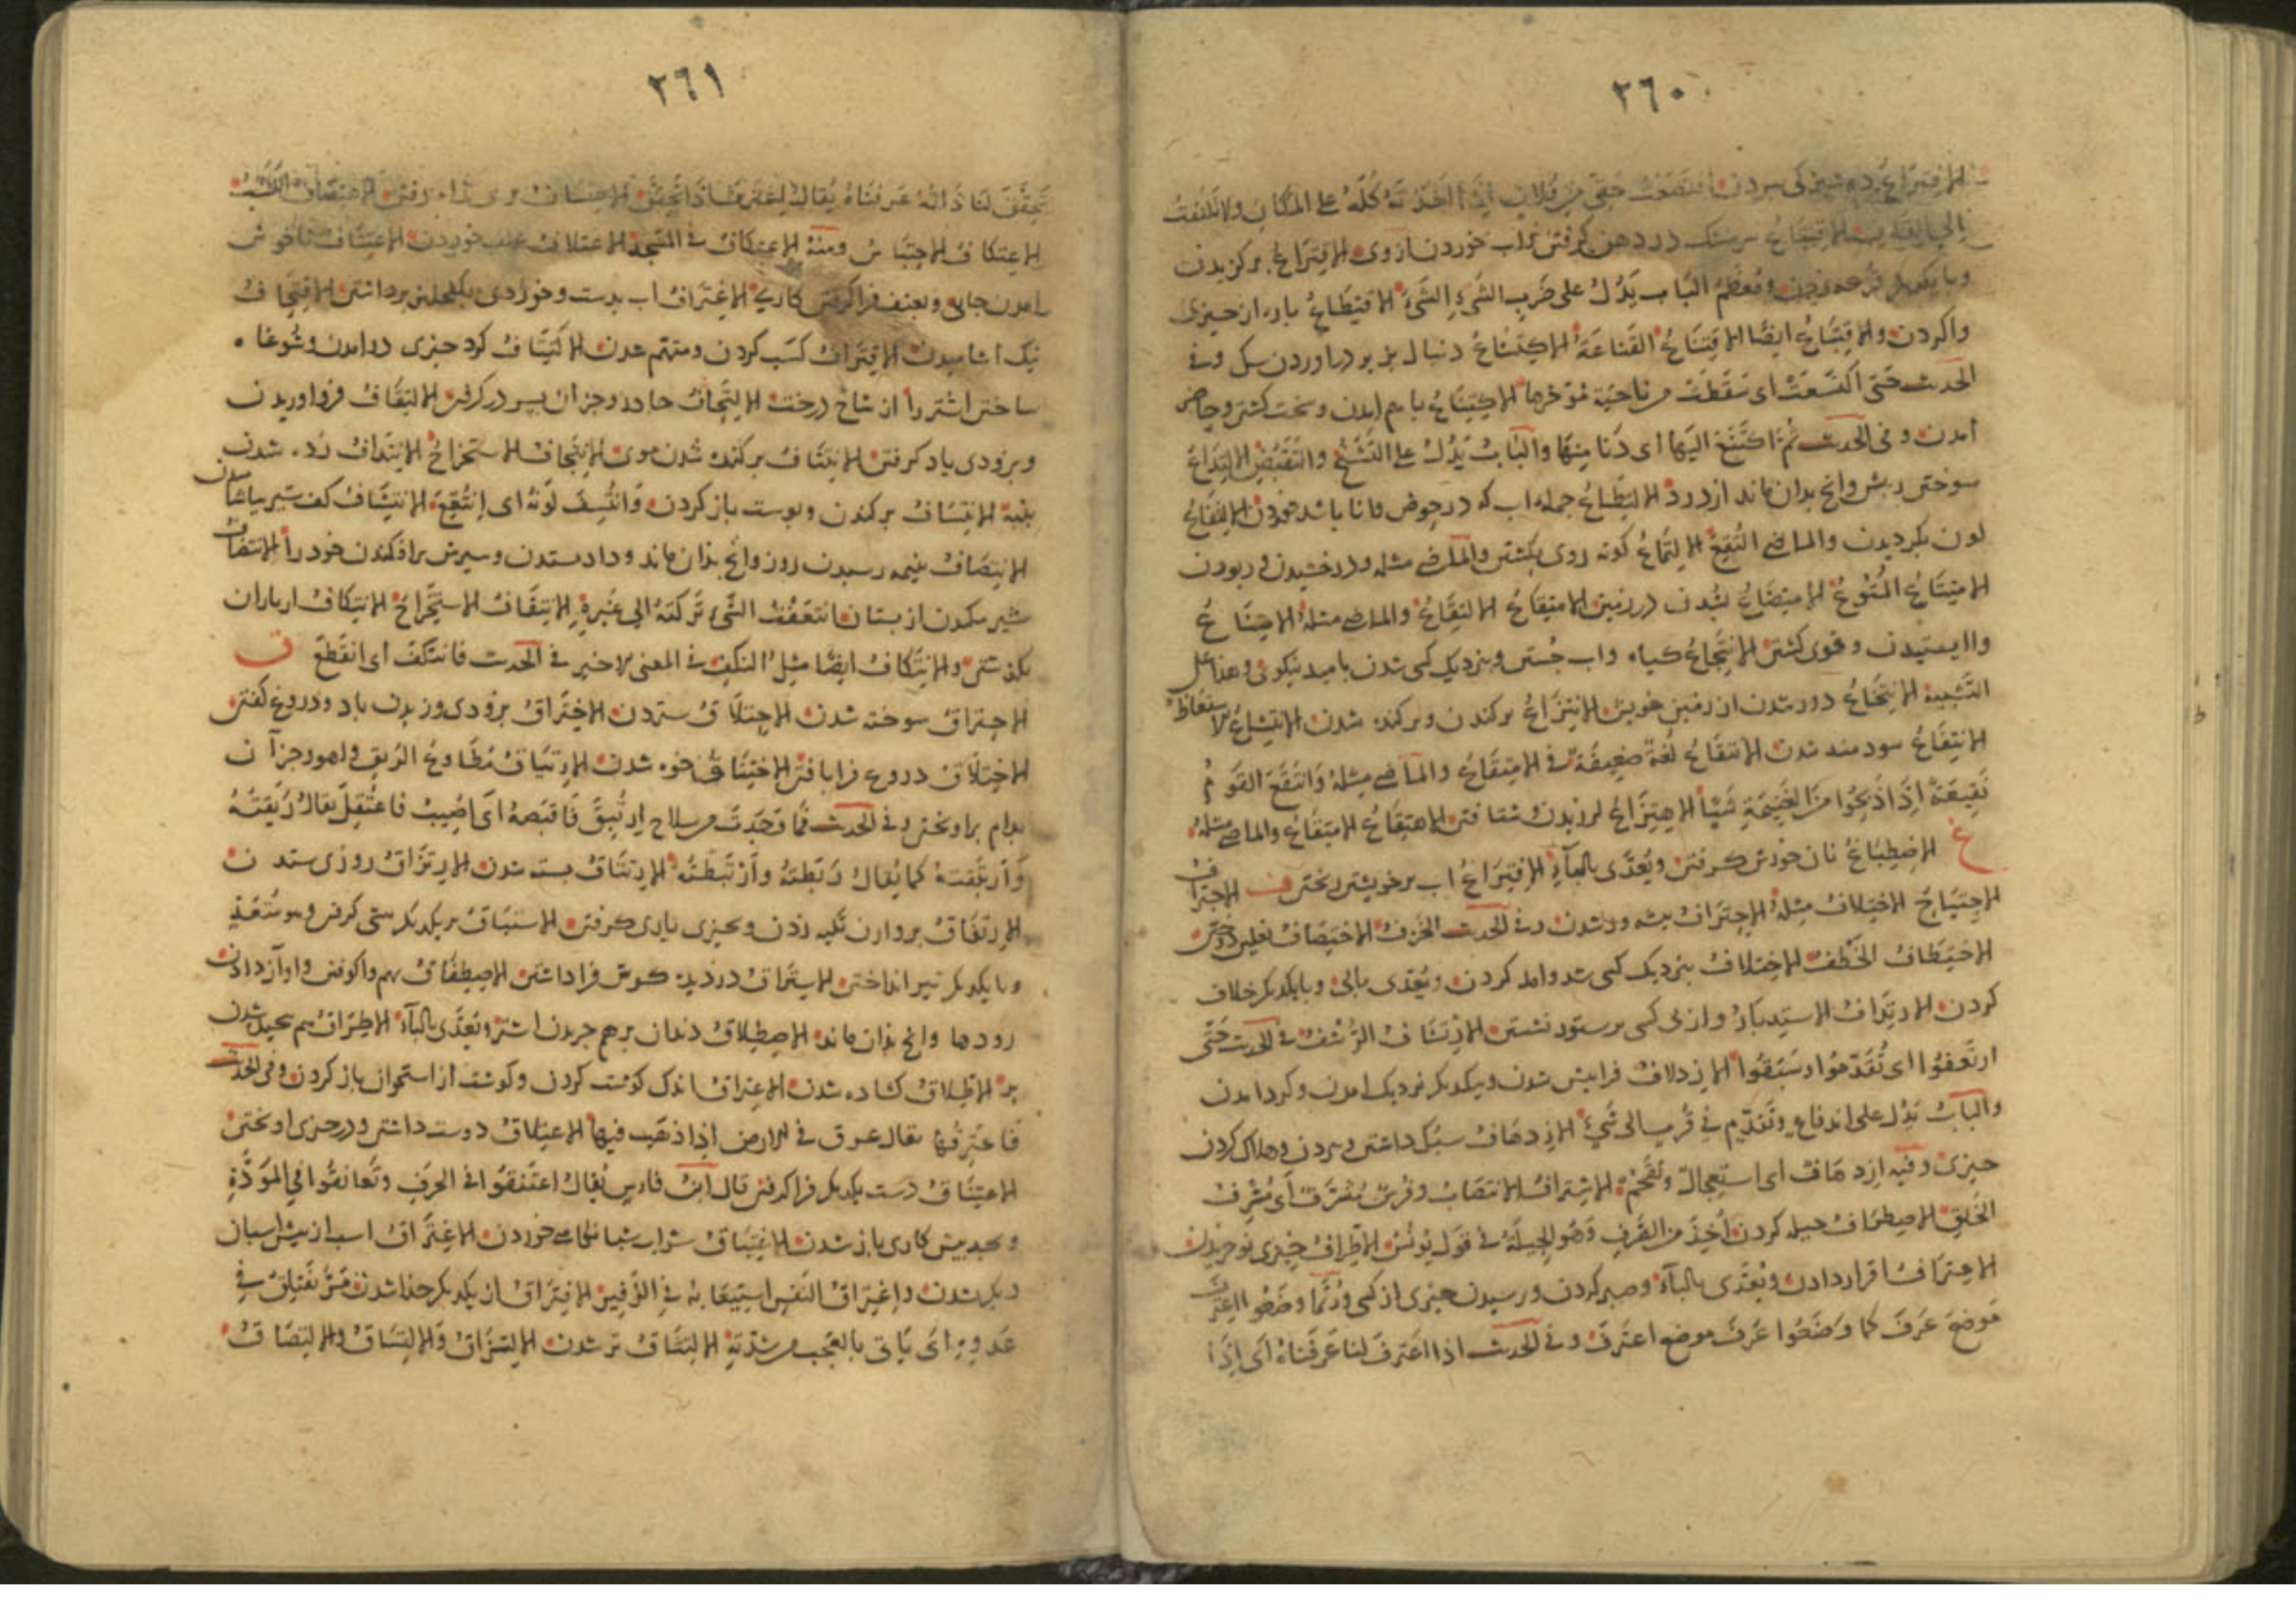 ٣٦٠
الافتراع دوشیزکی بردن حقی من فلان اذا اخذته کله علی المکان ولا تلتفت
سرشک در دهن کرفتن واب خوردن ازوی الاقتراع برکزیدن
وبایکدیکر قرعه زدن ومعظم الباب یدل علی ضرب الشیء الشیء الاقتطاع باره از چیزی
واکردن والاقتناع ایضا الاقتناع القناعة الاکتناع دنبال بزیر دراوردن سک وفی
الحدیث حتی اکتسعت ای سقطت من ناحیة مؤخرها الاکتناع باهم امدن وسخت کشتن وحاضر
امدن وفی الحدیث ثم اکتنع الیها ای دنا منها والباب یدل علی التشنج والتقبض الالتذاع
سوختن ریش وانچ بدان ماند از درد الالتطاع جمله اب که در حوض مانا باشد خوردن الالتفاع
لون بکردیدن والماضی التفع الالتماع کونه روی بکشتن والماضی مثله ودرخشیدن وربودن
الامتتاع المتوع الامتصاع بشدن در زمین الامتقاع الالتقاع والماضی مثله الامتناع
واایستیدن وقوی کشتن الانتجاع کیاه واب جستن وبنزدیک کسی شدن بامید نیکوی وهذا علی
التشبیه الانتخاع دور شدن از زمین خویش الانتزاع برکندن وبرکنده شدن الانتشاع الاستعاط
الانتفاع سودمند شدن الانتقاع لغة ضعیفة فی الامتقاع والماضی مثله وانتقع القوم
نقیعة اذا ذبحوا من الغنیمة شیئا الاهتزاع لرزیدن وشتافتن الاهتقاع الامتقاع والماضی مثله
غ الاصطباغ نان خورش کرفتن ویعدی بالباء الافتراغ اب بر خویشتن ریختن ف الاجتراف
الاجتیاح الاختلاف مثله الاحتراف پیشه ور شدن وفی الحدیث الخرف الاختصاف نعلین دوختن
الاختطاف الخطف الاختلاف بنزدیک کسی شد وامد کردن ویعدی بالی وبایکدیکر خلاف
کردن الارتداف الاستدبار واز پی کسی بر ستور نشستن الارتشاف الرشف فی الحدیث حتی
ارتعفوا ای تقدموا وسبقوا الازدلاف فرا پیش شدن وبیکدیکر نزدیک امدن وکرد امدن
والباب یدل علی اندفاع وتقدم فی قرب الی شیء الازدهاف سبک داشتن وبردن وهلاک کردن
چیزی وفیه ازدهاف ای استعجال وتقحم الاشتراف الانتصاب وفرس مشترف ای مشرف
الخلق الاصطراف حیله کردن اخذ من الصرف وهو الحیلة فی قول یونس الاطراف چیزی نو خریدن
الاعتراف اقرار دادن ویعدی بالباء وصبر کردن وپرسیدن چیزی از کسی وربما وضعوا اعترف
موضع عرف کما وضعوا عرف موضع اعترف وفی الحدیث اذا اعترف لنا عرفناه ای اذا
٣٦١
تحقق لنا ذاته عرفناه یقال اعترف اذا تحقق الاعتساف بی راه رفتن
الاعتکاف الاحتباس ومنه الاعتکاف فی المسجد الاعتلاف علف خوردن الاعتناف ناخوش
امدن جای وبعنف فرا کرفتن کاری الاغتراف اب بدست وخوردی بکفچلیز برداشتن الاقتحاف
نیک اشامیدن الاقتراف کسب کردن ومتهم شدن الاکتناف کرد چیزی درامدن وشوغا
ساختن اشتر را از شاخ درخت الالتحاف جادر وجز ان بسر در کرفتن الالتقاف فرو اوریدن
وبزودی یاد کرفتن الانتتاف برکنده شدن موی الانتجاف الاستخراج الانتداف زده شدن
پنبه الانتساف برکندن وپوست باز کردن وانتسف لونه ای انتقع الانتشاف کف شیر بیاشامیدن
الانتصاف بنیمه رسیدن روز وانچ بدان ماند وداد ستدن وسیرش برافکندن خود را الانتضاف
شیر مکیدن از بستان انتعفت الشیء ترکته الی غیره الانتقاف الاستخراج الانتکاف از باران
بکذشتن والانتکاف ایضا مثل النکف فی المعنی الاخیر فی الحدیث فانتکف ای انقطع ق
الاحتراق سوخته شدن الاحتلاق ستردن الاختراق بزودی وزیدن باد ودروغ کفتن
الاختلاق دروغ فرا بافتن الاختناق خوه شدن الارتباق مطاوع الربق ولهو در جز آن
بدام براویختن وفی الحدیث فما وجدت من سلاح ارتبق فاقبضه ای اصیب فاعتقل یقال ربقته
وارتبقته کما یقال ربطته وارتبطته الارتتاق بسته شدن الارتزاق روزی ستدن
الارتفاق بر وارن تکیه زدن وبچیزی یاری کرفتن الاستباق بر یکدیکر پیشی کرفتن وهو متعد
وبایکدیکر تیر انداختن الاستراق دزدیده کوش فرا داشتن الاصطفاق بهم واکوفتن واواز دادن
رودها وانچ بدان ماند الاصطلاق دندان برهم جریدن اشتر ویعدی بالباء الاطراق بهم بخیل شدن
پر الاطلاق کشاده شدن الاعتراق اندک کوشت کردن وکوشت از استخوان باز کردن وفی الحدیث
فاعترقها یقال عرق فی الارض اذا ذهب فیها الاعتلاق دوست داشتن ودر چیزی اویختن
الاعتناق دست یکدیکر فرا کرفتن قال ابن فارس یقال اعتنقوا فی الحرب وتعانقوا فی المودة
وبجد پیش کاری باز شدن الاغتباق شراب شبانکاهی خوردن الاغتراق اسب از پیش اسبان
دیکر شدن واغتراق النفس استیعابه فی الزفیر الافتراق از یکدیکر جذا شدن مر یفتلق فی
عدوه ای یاتی بالعجب من شدته الالتثاق تر شدن الالتزاق والالتساق والالتصاق